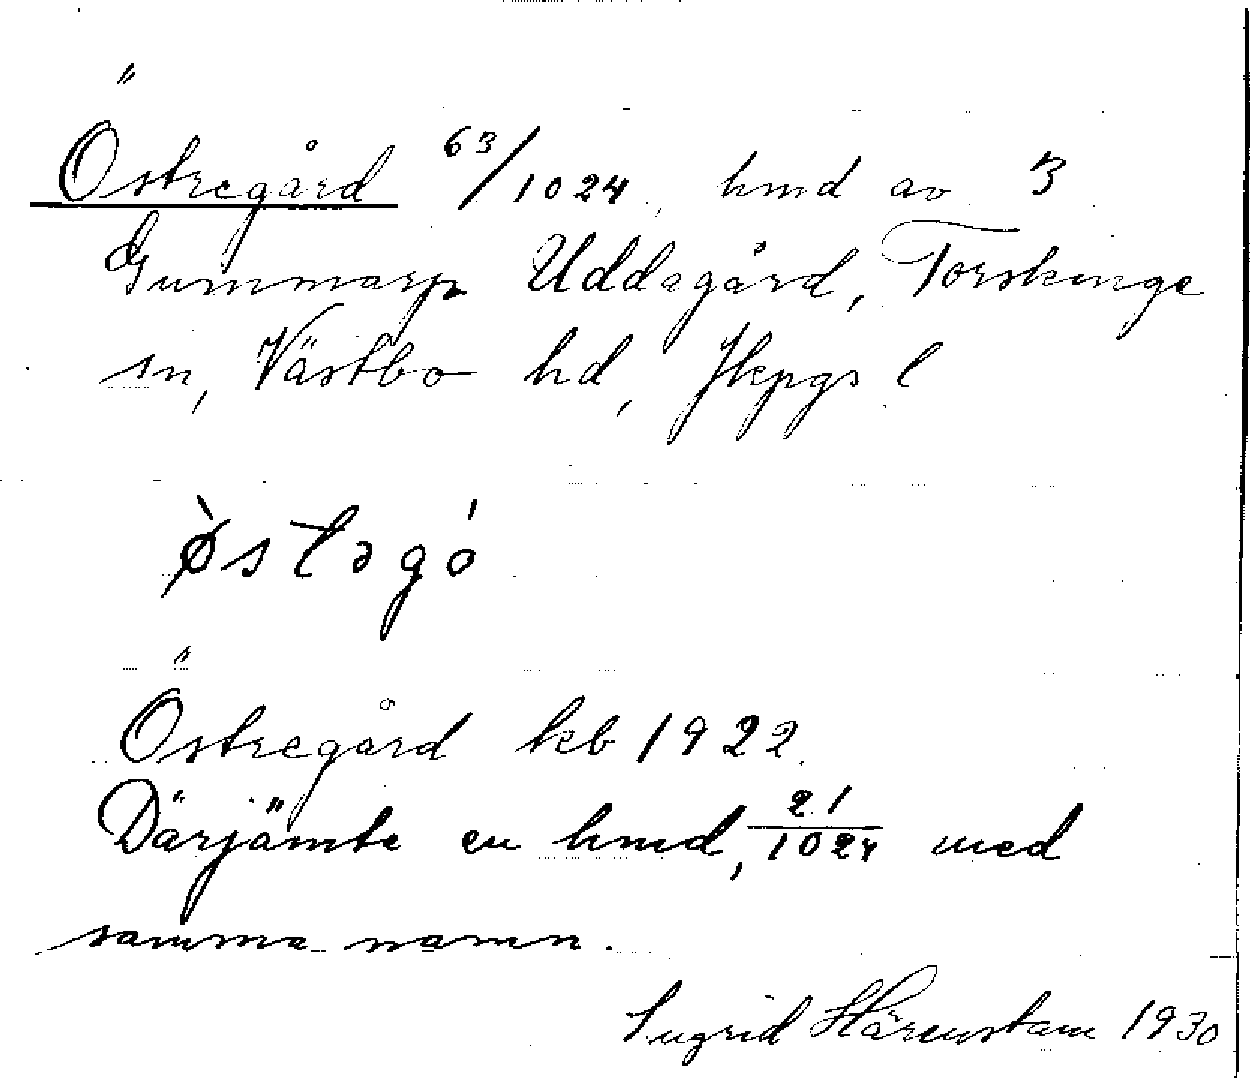 Östregård 63/1024, hmd av 3
Gummarp Uddagård, Torskinge
sn, Västbo hd, Jkpgs l
ø̀stəgó
Östregård kb 1922.
Därjämte en hmd, 21/1024 med
samma namn.
Ingrid Härenstam 1930